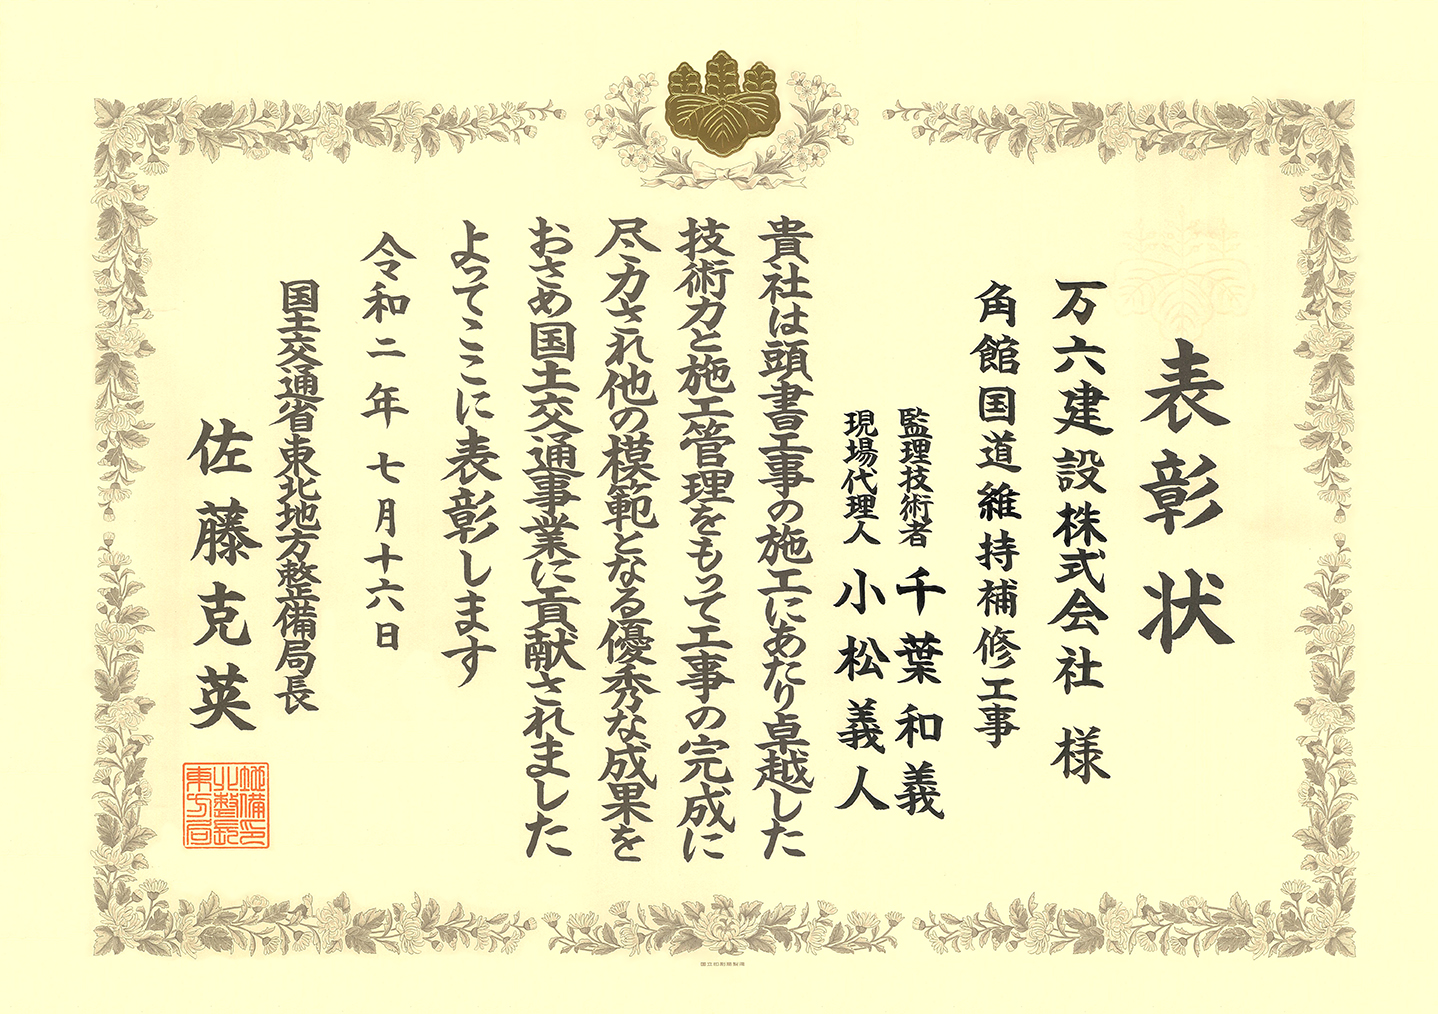 表彰状
万六建設株式会社 様
角館国道維持補修工事
監理技術者 千葉和義
現場代理人 小松義人
貴社は頭書工事の施工にあたり卓越した
技術力と施工管理をもって工事の完成に
尽力され他の模範となる優秀な成果を
おさめ国土交通事業に貢献されました
よってここに表彰します
令和二年七月十六日
国土交通省東北地方整備局長
佐藤克英
国立印刷局製造